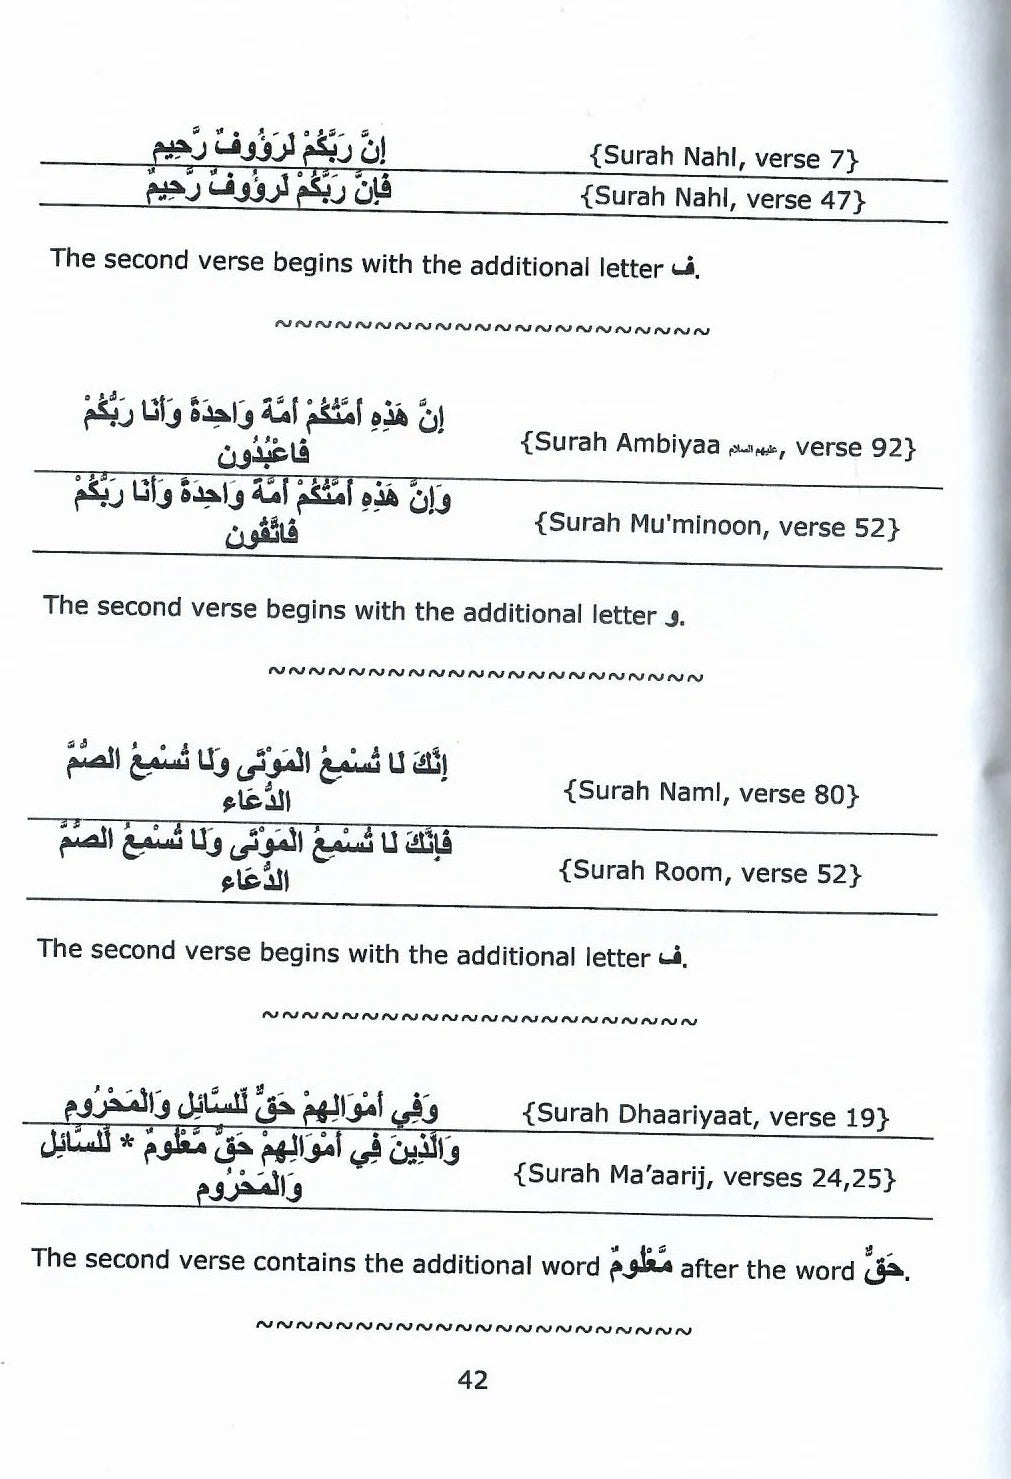 إِنَّ رَبَّكُمْ لَرَؤُوفٌ رَّحِيمٌ {Surah Nahl, verse 7}
فَإِنَّ رَبَّكُمْ لَرَؤُوفٌ رَّحِيمٌ {Surah Nahl, verse 47}
The second verse begins with the additional letter ف.
~~~~~~~~~~~~~~~~~~~~~~
إِنَّ هَذِهِ أُمَّتُكُمْ أُمَّةً وَاحِدَةً وَأَنَا رَبُّكُمْ
فَاعْبُدُونِ {Surah Ambiyaa عليهم السلام, verse 92}
وَإِنَّ هَذِهِ أُمَّتُكُمْ أُمَّةً وَاحِدَةً وَأَنَا رَبُّكُمْ
فَاتَّقُونِ {Surah Mu'minoon, verse 52}
The second verse begins with the additional letter و.
~~~~~~~~~~~~~~~~~~~~~~
إِنَّكَ لَا تُسْمِعُ الْمَوْتَى وَلَا تُسْمِعُ الصُّمَّ
الدُّعَاء {Surah Naml, verse 80}
فَإِنَّكَ لَا تُسْمِعُ الْمَوْتَى وَلَا تُسْمِعُ الصُّمَّ
الدُّعَاء {Surah Room, verse 52}
The second verse begins with the additional letter ف.
~~~~~~~~~~~~~~~~~~~~~~
وَفِي أَمْوَالِهِمْ حَقٌّ لِّلسَّائِلِ وَالْمَحْرُومِ {Surah Dhaariyaat, verse 19}
وَالَّذِينَ فِي أَمْوَالِهِمْ حَقٌّ مَّعْلُومٌ * لِّلسَّائِلِ
وَالْمَحْرُومِ {Surah Ma'aarij, verses 24,25}
The second verse contains the additional word مَّعْلُومٌ after the word حَقٌّ.
~~~~~~~~~~~~~~~~~~~~~~
42